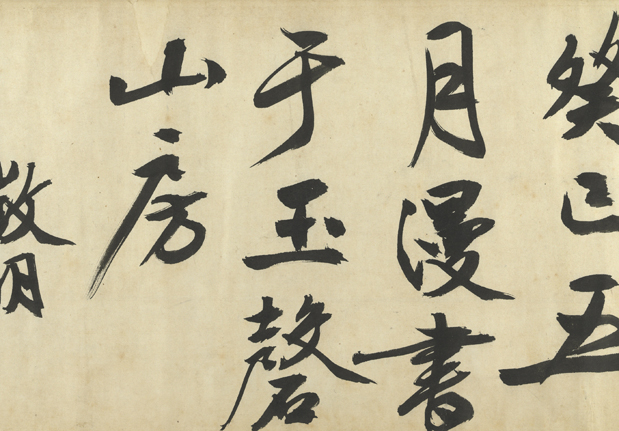 癸巳五
月漫書
于玉磬
山房